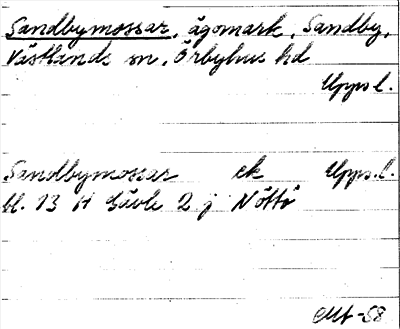 Sandbymossar, ägomark, Sandby,
Västlands sn, Örbyhus hd
Upps l.
Sandbymossar ek Upps. l.
bl. 13 H Gävle 2 j Nöttö
-58